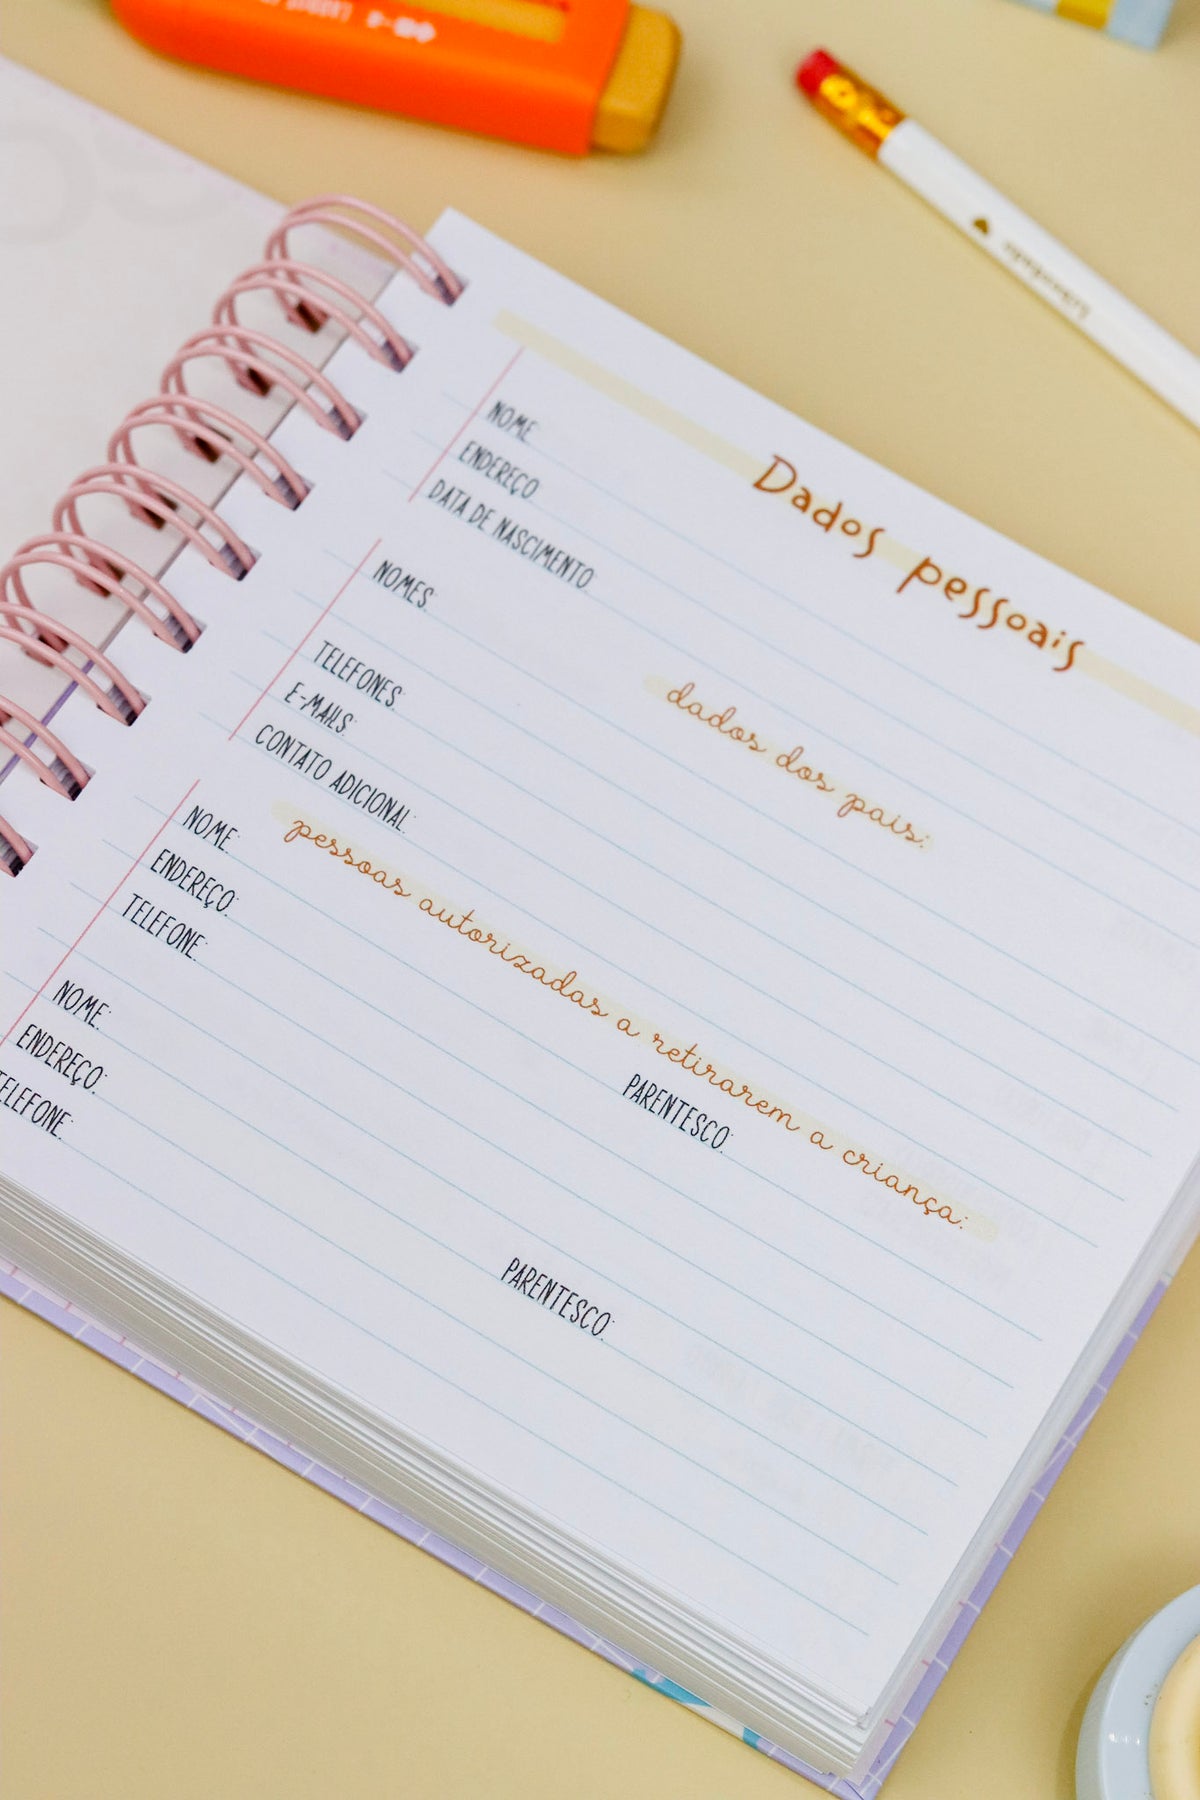 Dados pessoais
NOME
ENDEREÇO
DATA DE NASCIMENTO
dados dos pais:
NOMES:
TELEFONES:
E-MAILS:
CONTATO ADICIONAL:
pessoas autorizadas a retirarem a criança:
NOME:
ENDEREÇO:
TELEFONE:
PARENTESCO:
NOME:
ENDEREÇO:
TELEFONE:
PARENTESCO: